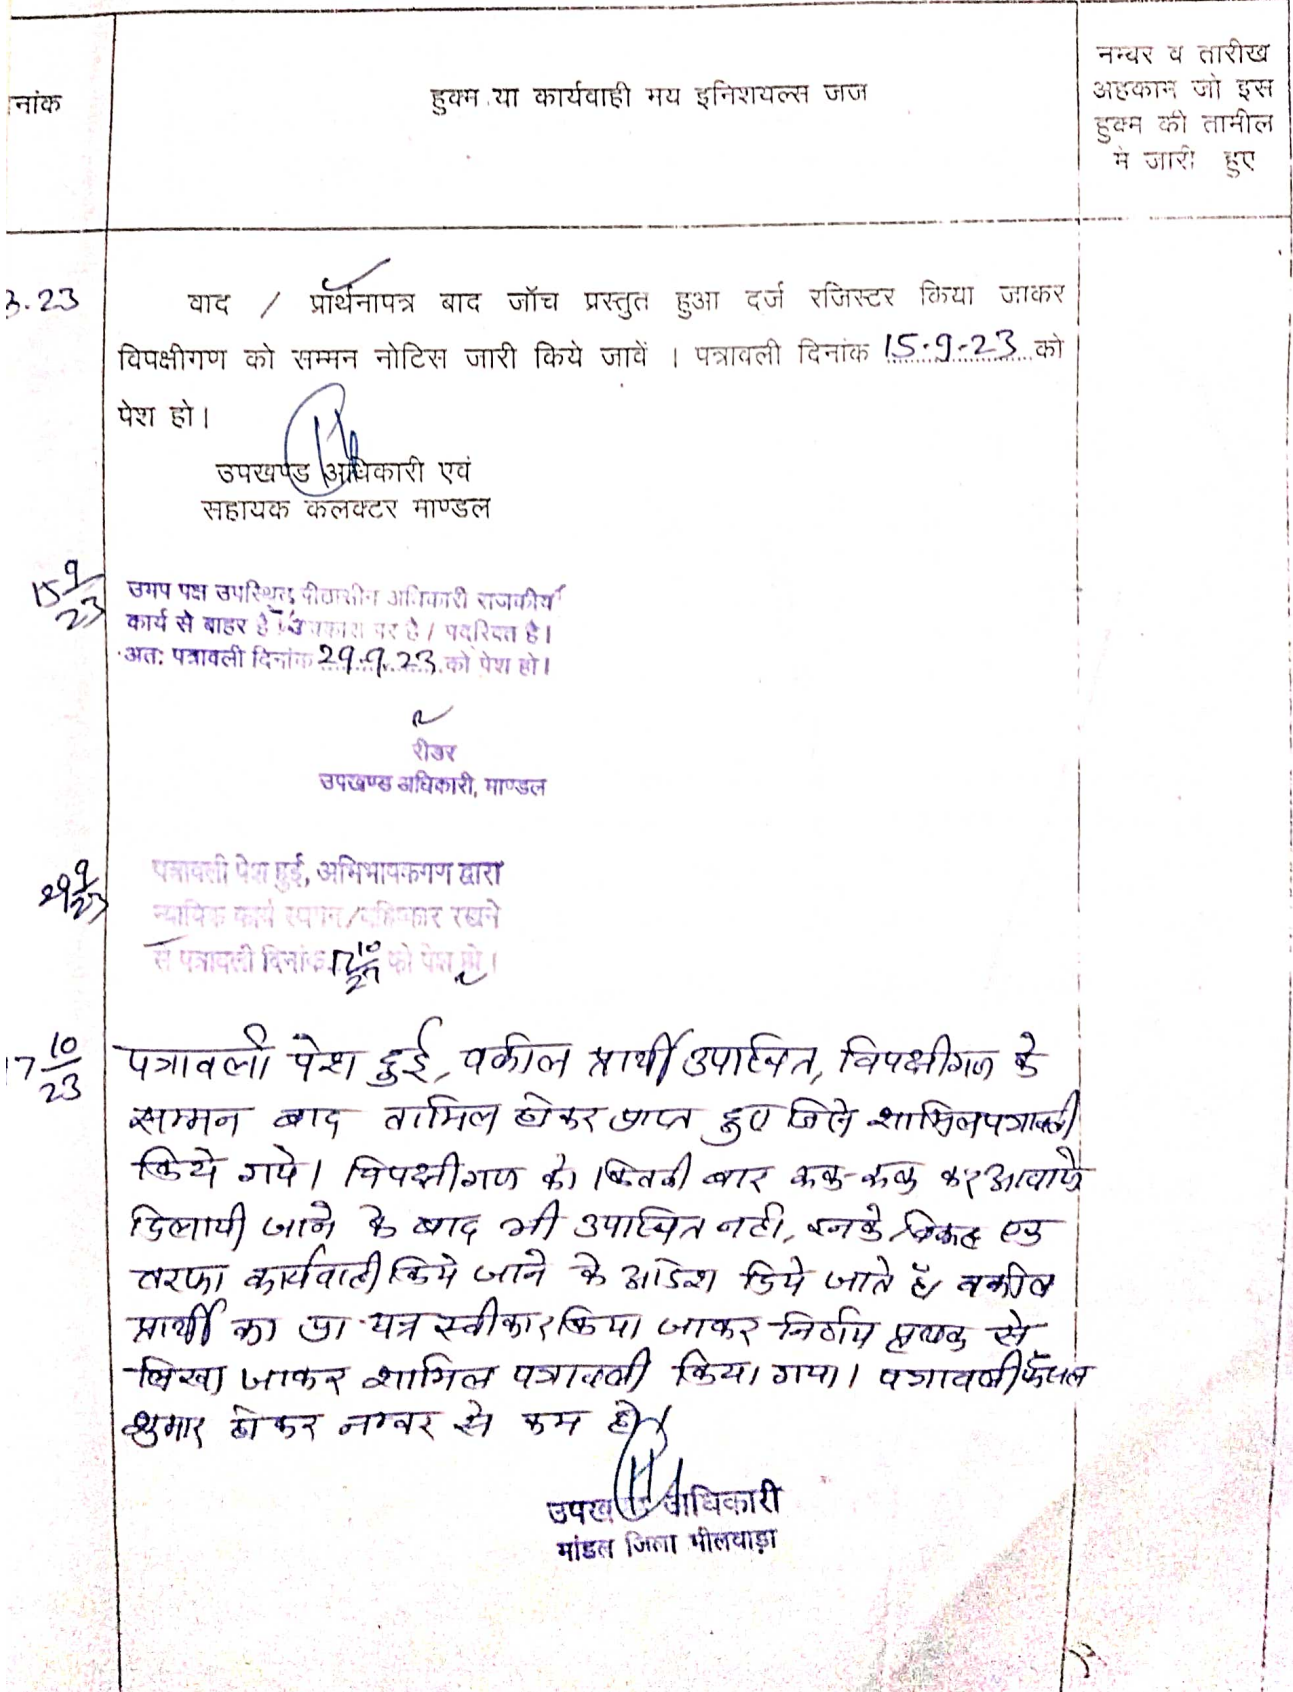 नांक
हुक्म या कार्यवाही मय इनिशयल्स जज
नम्बर व तारीख
अहकाम जो इस
हुक्म की तामील
मे जारी हुए
3.23
वाद / प्रार्थनापत्र बाद जॉच प्रस्तुत हुआ दर्ज रजिस्टर किया जाकर
विपक्षीगण को सम्मन नोटिस जारी किये जावें । पत्रावली दिनांक 15.9.23 को
पेश हो।
उपखण्ड अधिकारी एवं
सहायक कलक्टर माण्डल
15 9/23
उभय पक्ष उपस्थित, पीठासीन अधिकारी राजकीय
कार्य से बाहर है / अवकाश पर है / पदरिक्त है।
अतः पत्रावली दिनांक 29.9.23 को पेश हो।
रीडर
उपखण्ड अधिकारी, माण्डल
29 9/23
पत्रावली पेश हुई, अभिभाषकगण द्वारा
न्यायिक कार्य स्थगन/बहिष्कार रखने
से पत्रावली दिनांक 17 10/23 को पेश हो।
7 10/23
पत्रावली पेश हुई, वकील प्रार्थी उपस्थित, विपक्षीगण के
सम्मन बाद तामिल होकर प्राप्त हुए जिसे शामिल पत्रावली
किये गये। विपक्षीगण को कितनी बार रूक-रूक कर आवाजे
दिलायी जाने के बाद भी उपस्थित नही, इनके विरूद्ध एक
तरफा कार्यवाही किये जाने के आदेश दिये जाते है। वकील
प्रार्थी का प्रा. पत्र स्वीकार किया जाकर निर्णय पृथक से
लिखा जाकर शामिल पत्रावली किया गया। पत्रावली फैसल
शुमार होकर नम्बर से कम हो।
उपखण्ड अधिकारी
मांडल जिला भीलवाड़ा